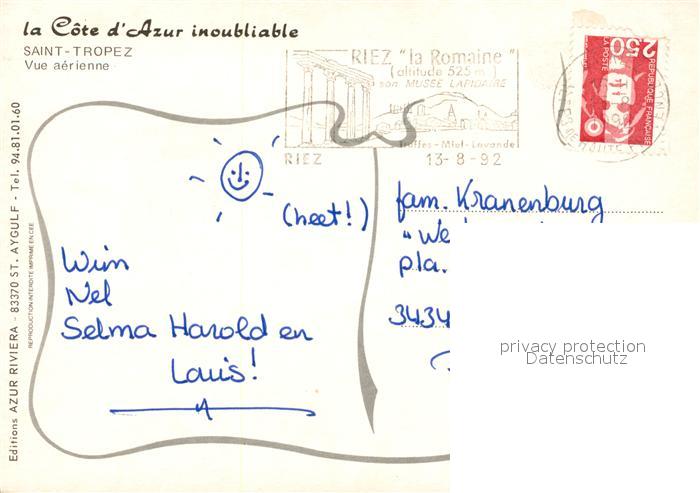 la Côte d'Azur inoubliable
SAINT-TROPEZ
Vue aérienne
RIEZ "la Romaine"
(altitude 525 m)
son MUSÉE LAPIDAIRE
Truffes - Miel - Lavande
RIEZ
13-8-92
2,50
LA POSTE
REPUBLIQUE FRANÇAISE
(heet!)
Wim
Nel
Selma Harold en
Louis!
fam. Kranenburg
"We
pla.
3434
privacy protection
Datenschutz
Editions AZUR RIVIERA - 83370 ST. AYGULF - Tel. 94.81.01.60
REPRODUCTION INTERDITE IMPRIME EN CEE